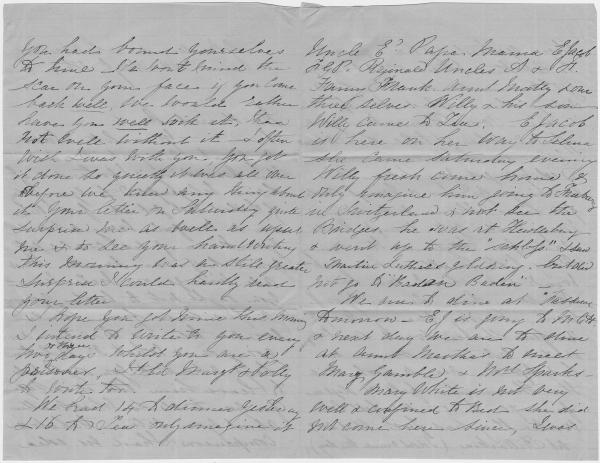 You had bound yourselves
to time I'd don't mind the
scar on your face if you come
back well. We would rather
have you well with it, than
not well without it I often
wish I was with you. You got
it done so quietly it was all over
before we knew any thing about
it your letter on Saturday quite
surprised me as well as upset
me & to see your handwriting
this morning was a still greater
surprise I could hardly read
your letter
I hope you got mine this morning
I intend to write to you every
two days whilst you are a
prisoner, I told Mary & Polly
to write too
We had 14 to dinner yesterday
& 16 to Tea only imagine it
Uncle E. Papa. Mama E Jacob
Reginald Uncles A &
Fanny Frank. Aunt Matty & our
three selves. Willy & his son
Will came to Tea. E Jacob
is here on her way to Selina
she came Saturday evening
Willy fresh come home &
only imagine him going to
in Switzerland & not see the
Bridges he was at
& went up to the "schloss" & saw
Martin Luther's but did
not go to "Baden Baden" -
We are to dine at
tomorrow - E J is going to
& next day we are to dine
at Aunt Martha's to meet
Mary Gamble & Mrs Sparks -
Mary White is not very
well & confined to bed she did
not come here since, I was